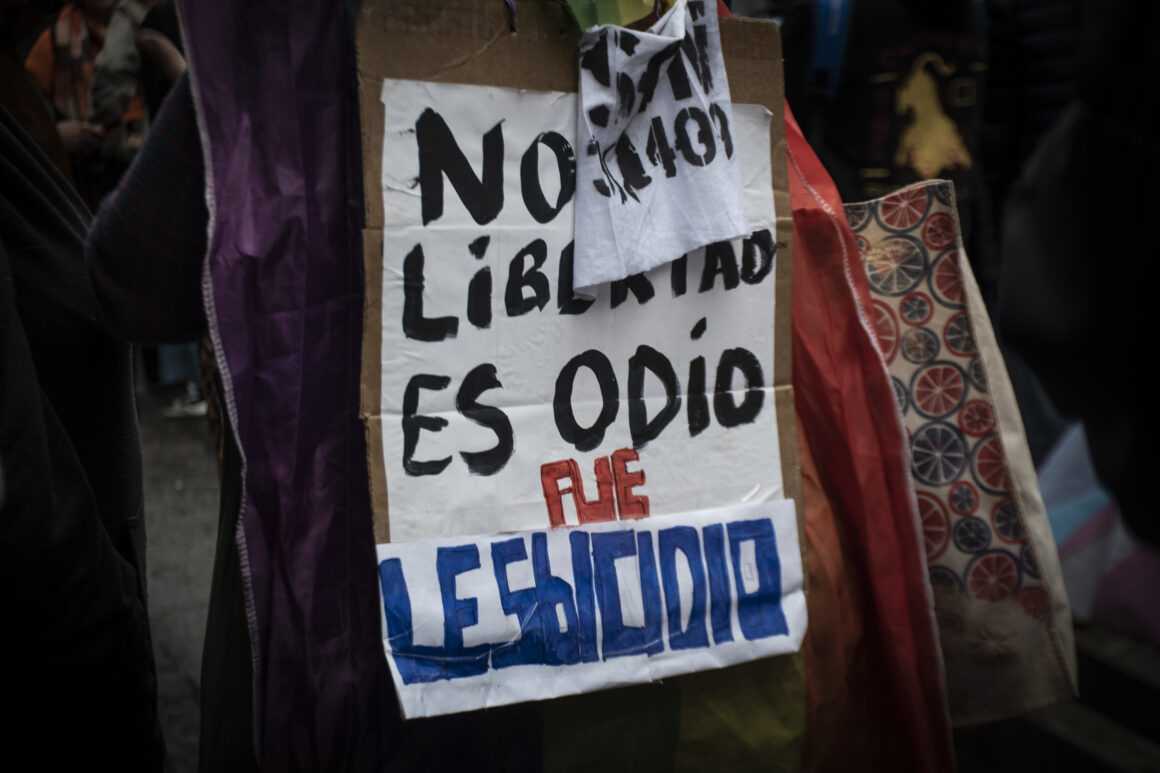 NO
LIBERTAD
ES ODIO
FUE
LESBICIDIO